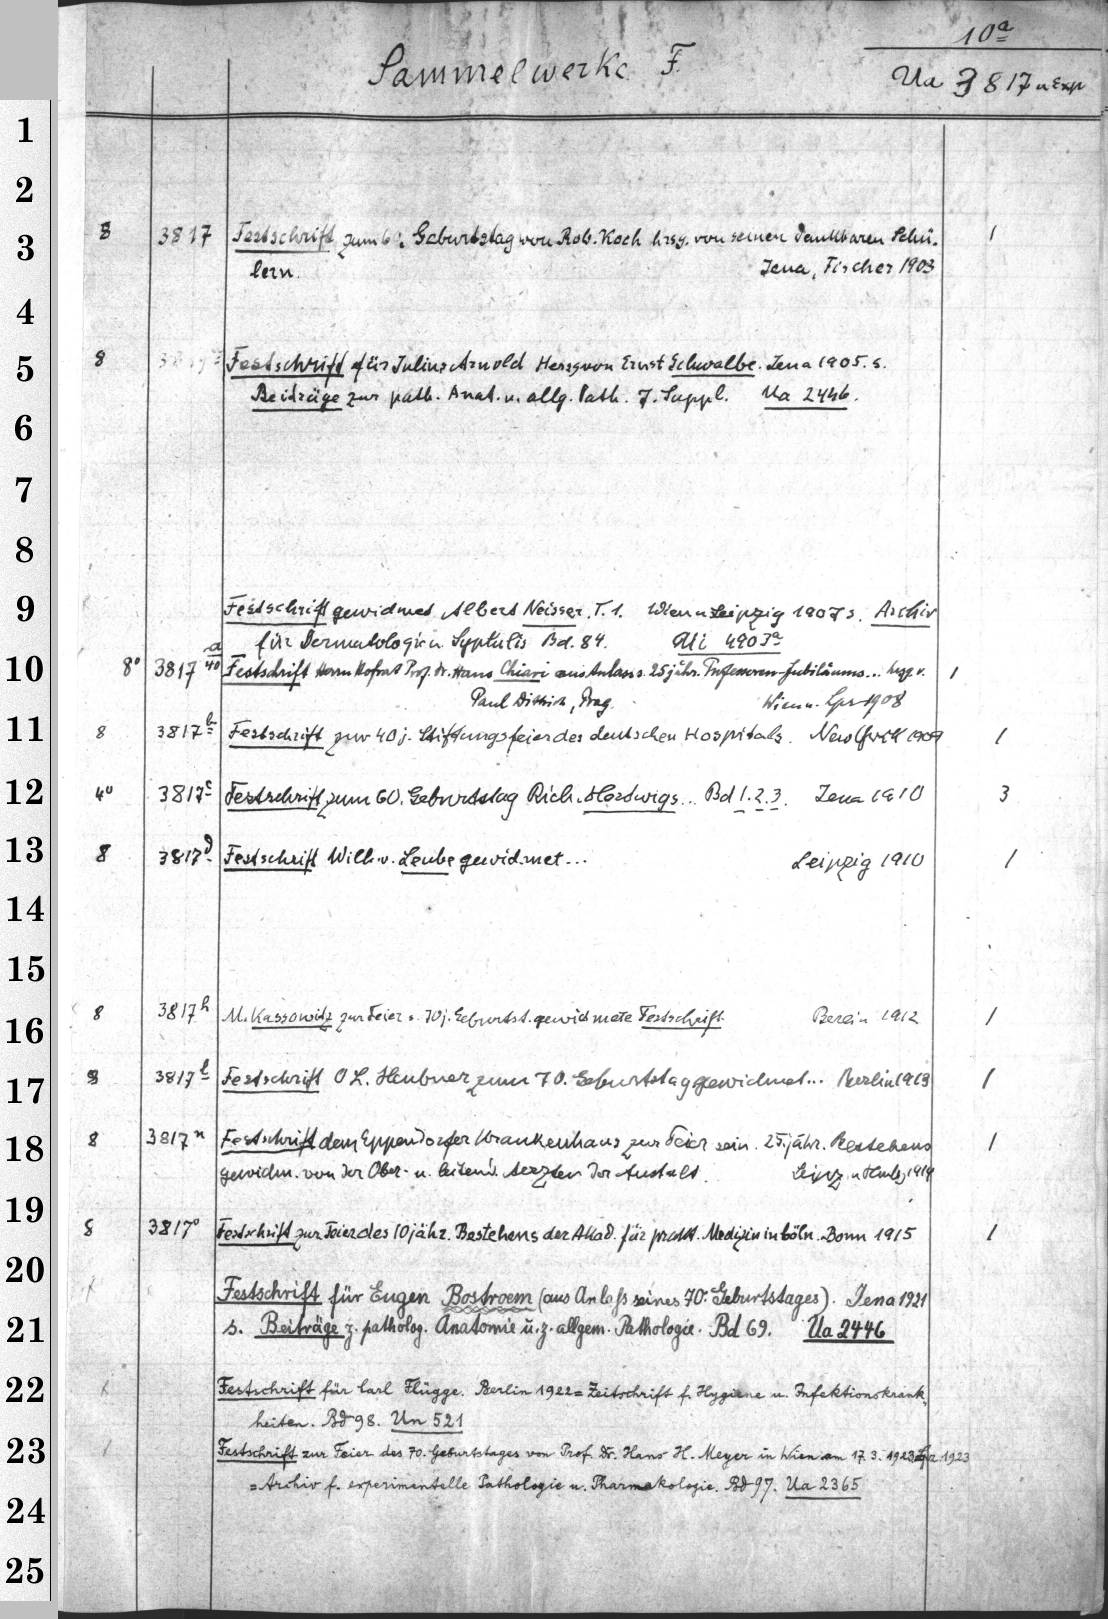 10a
Sammelwerke F.
Ua 3817 u Exp
1
2
3
8 3817 Festschrift zum 60. Geburtstag von Rob. Koch hrsg. von seinen dankbaren Schü- 1
lern. Jena, Fischer 1903
4
5
8 Festschrift für Julius Arnold Hersg von Ernst Schwalbe. Jena 1905. s.
Beiträge zur path. Anat. u. allg. Path. 7. Suppl. Ua 2446.
6
7
8
9
Festschrift gewidmet Albert Neisser. T. 1. Wien u Leipzig 1907 s. Archiv
für Dermatologie u. Syphilis Bd. 84. Ui 4903a
10
8° 3817 a 40 Festschrift Herrn Hofrat Prof. Dr. Hans Chiari aus Anlass s. 25jähr. Professoren-Jubiläums... hrsg. v. 1
Paul Dittrich, Prag. Wien u. Lpz 1908
11
8 3817b Festschrift zur 40j. Stiftungsfeier des deutschen Hospitals. New York 1909 1
12
4° 3817c Festschrift zum 60. Geburtstag Rich. Hertwigs... Bd 1. 2. 3. Jena 1910 3
13
8 3817d Festschrift Wilh. v. Leube gewidmet... Leipzig 1910 1
14
15
16
8 3817h M. Kassowitz zur Feier s. 70j. Geburtst. gewidmete Festschrift Berlin 1912 1
17
8 3817l Festschrift O L. Heubner zum 70. Geburtstag gewidmet... Berlin 1913 1
18
8 3817n Festschrift dem Eppendorfer Krankenhaus zur Feier sein. 25.jähr. Bestehens 1
gewidm. von der Ober- u. leitend. Aerzten der Anstalt. Leipz. u Hambg 1914
19
8 3817o Festschrift zur Feier des 10jähr. Bestehens der Akad. für prakt. Medizin in Cöln. Bonn 1915 1
20
Festschrift für Eugen Bostroem (aus Anlaß seines 70. Geburtstages). Jena 1921
21
s. Beiträge z. patholog. Anatomie u. z. allgem. Pathologie. Bd 69. Ua 2446
22
Festschrift für Carl Flügge. Berlin 1922 = Zeitschrift f. Hygiene u. Infektionskrank-
heiten. Bd 98. Un 521
23
Festschrift zur Feier des 70. Geburtstages von Prof. Dr. Hans H. Meyer in Wien am 17. 3. 1923. Lpz. 1923
= Archiv f. experimentelle Pathologie u. Pharmakologie. Bd 97. Ua 2365
24
25